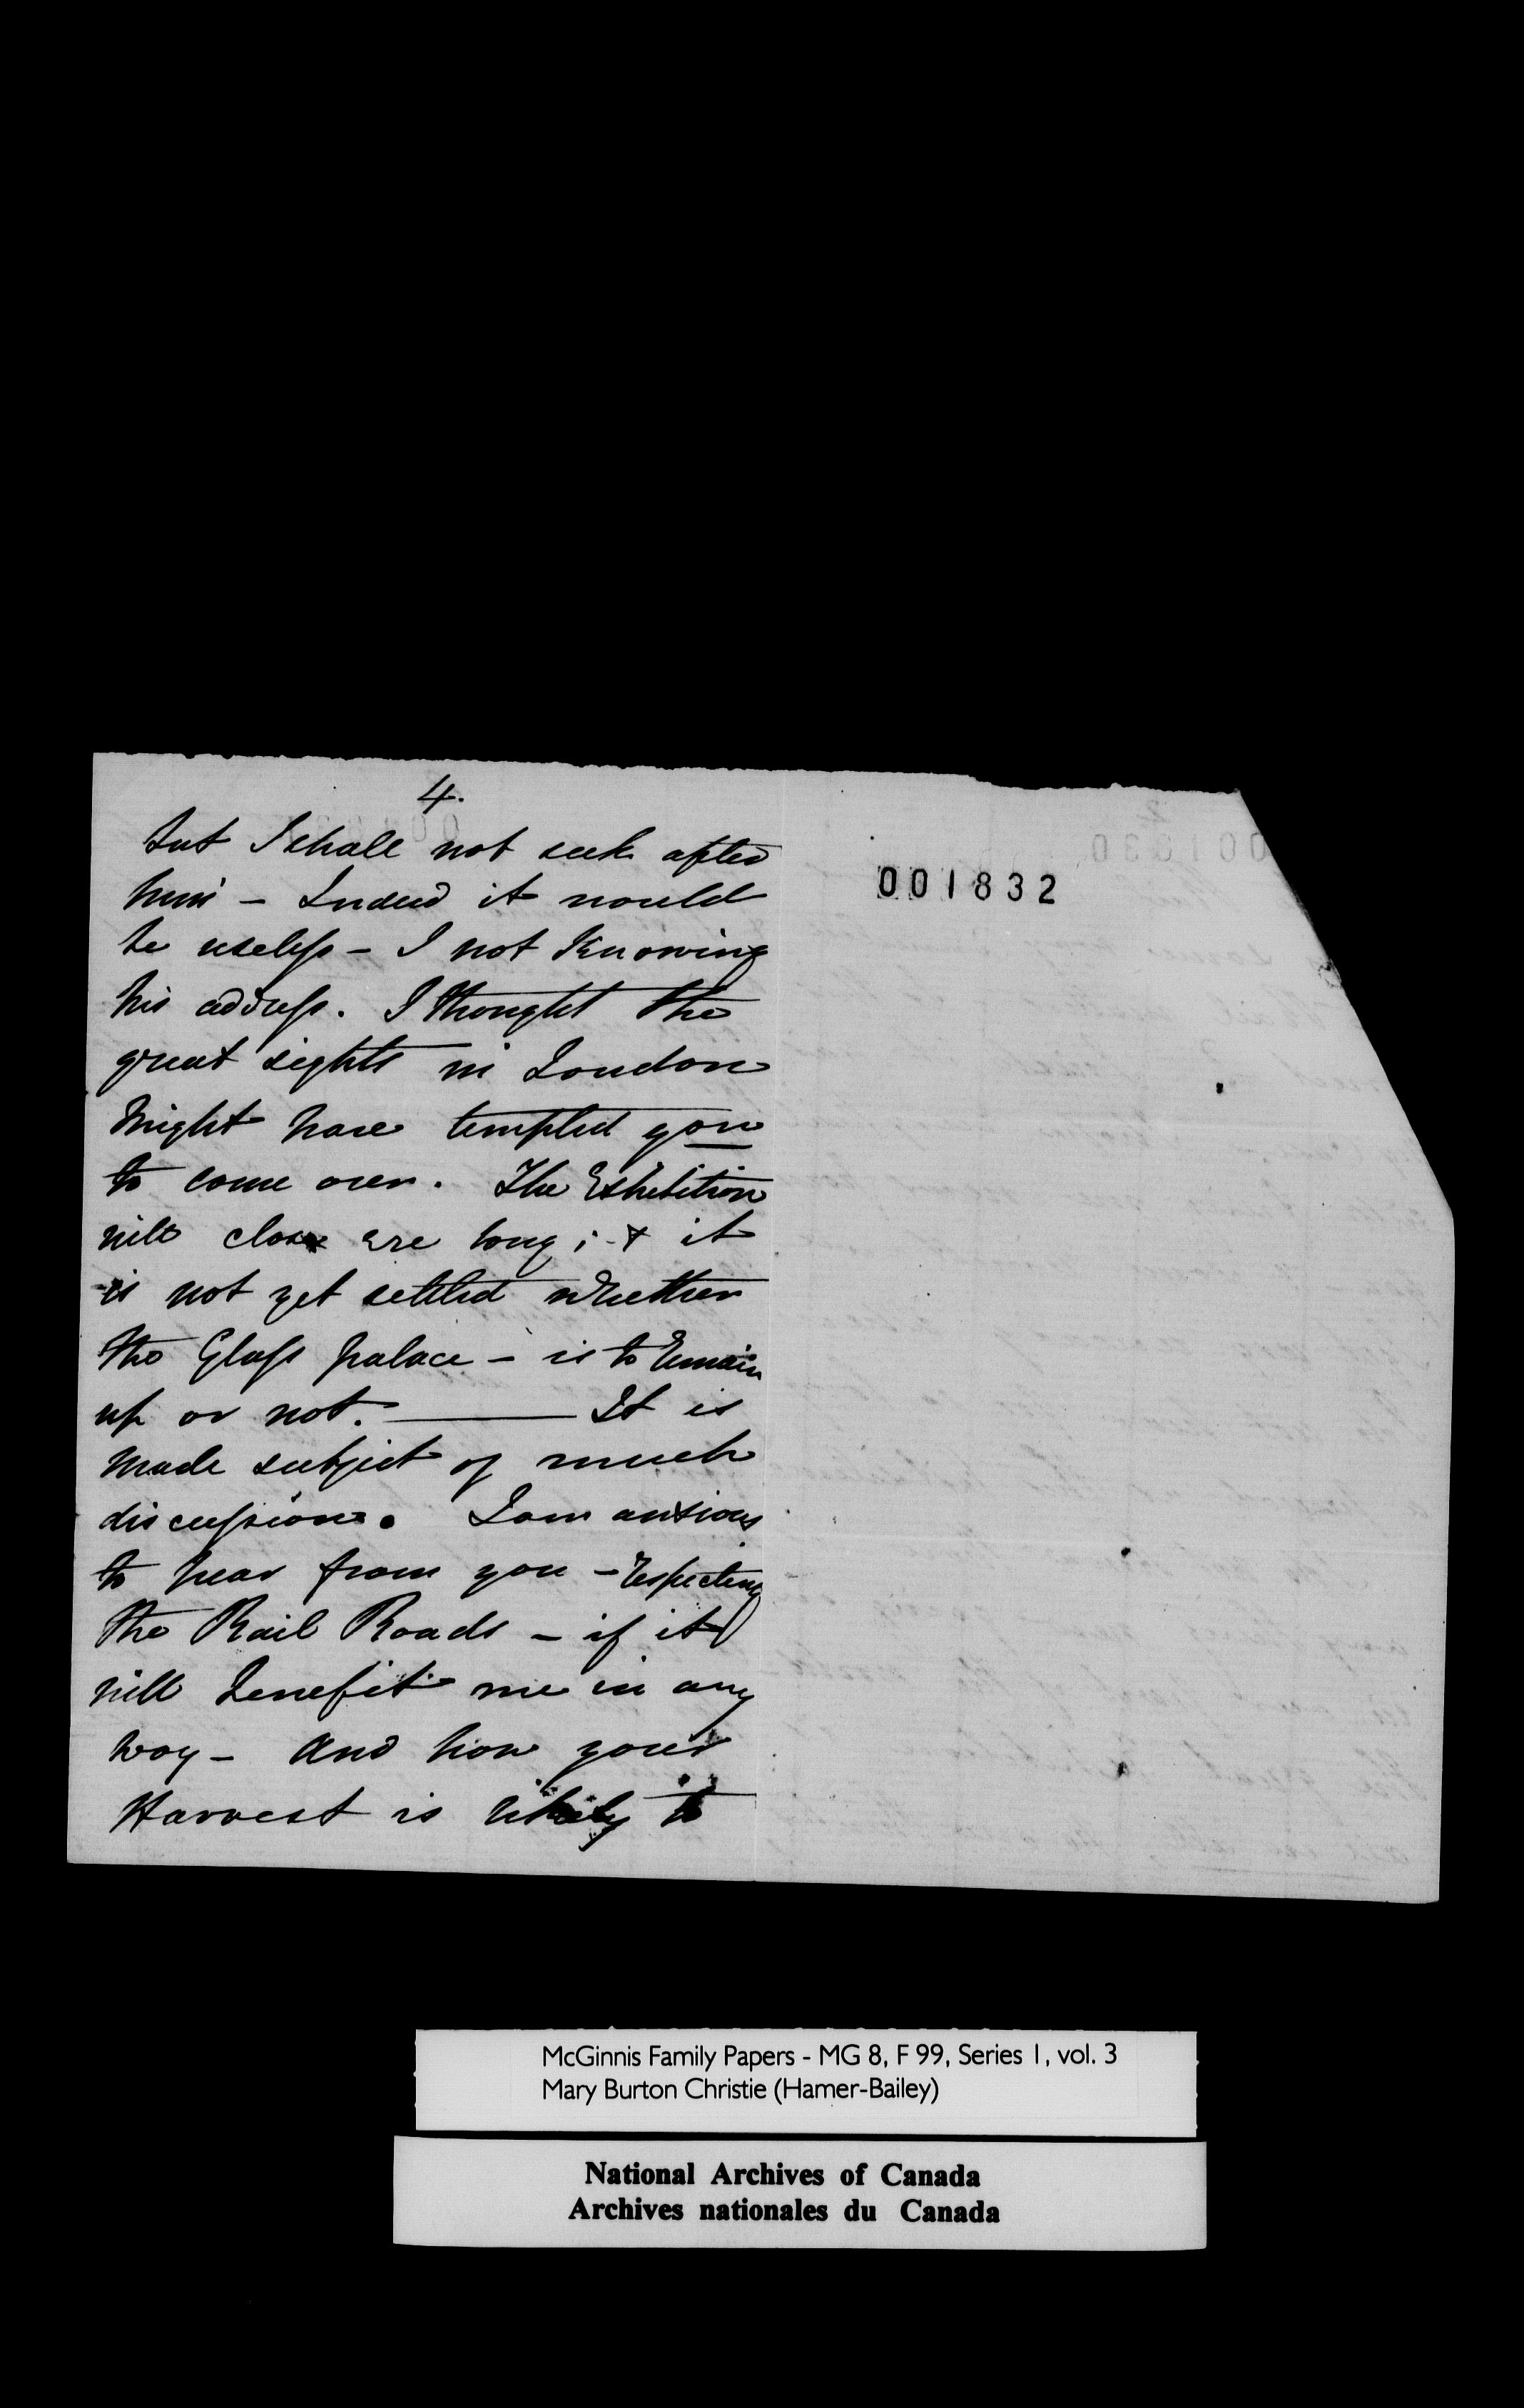 4.
but I shall not seek after
him - Indeed it would
be useless - I not Knowing
his address. I thought the
great sights in London
might have tempted you
to come over. The Exhibition
will close ere long; & it
is not yet settled whether
the Glass palace - is to remain
up or not. ——— It is
made subject of much
discussion. I am anxious
to hear from you - respecting
the Rail Roads - if it
will benefit me in any
way - And how your
Harvest is likely to
001832
McGinnis Family Papers - MG 8, F 99, Series 1, vol. 3
Mary Burton Christie (Hamer-Bailey)
National Archives of Canada
Archives nationales du Canada